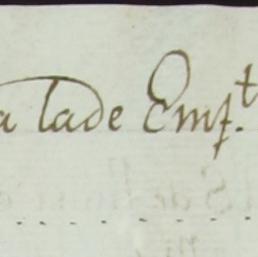 a lade Emp.t